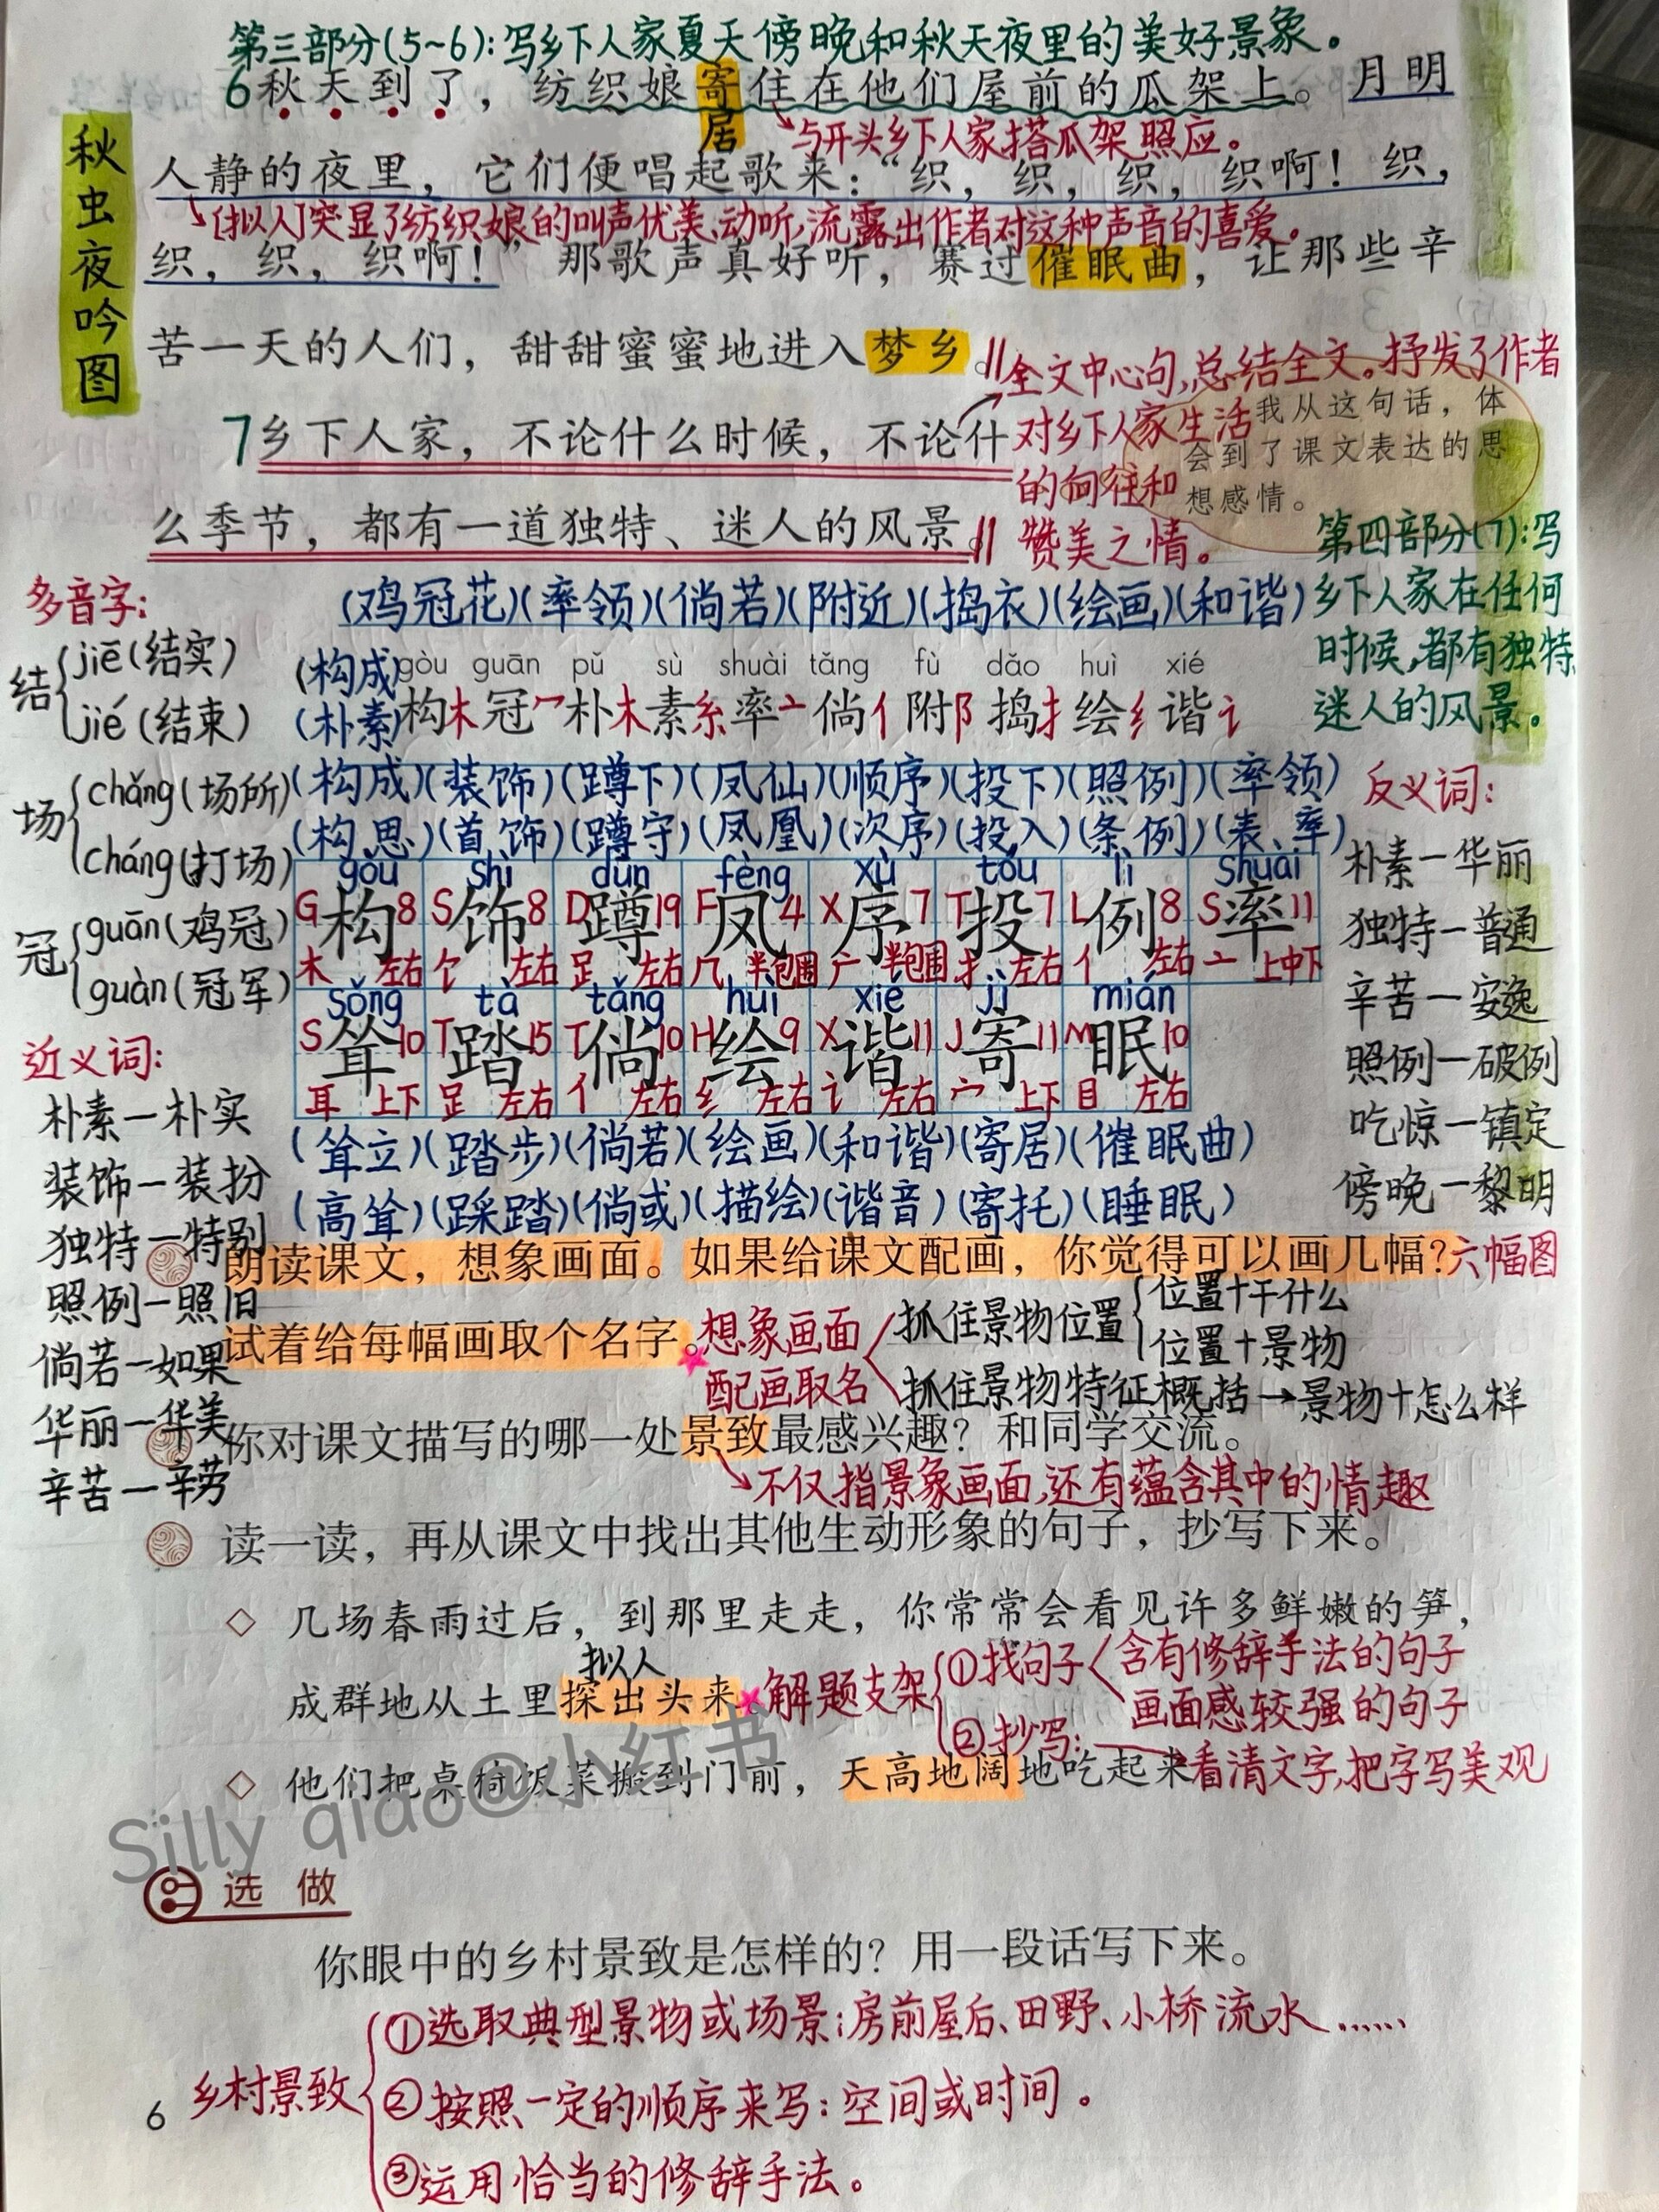 第三部分(5~6):写乡下人家夏天傍晚和秋天夜里的美好景象。
6秋天到了，纺织娘寄住在他们屋前的瓜架上。月明
居
与开头乡下人家搭瓜架照应。
秋虫夜吟图
人静的夜里，它们便唱起歌来：“织，织，织，织啊！织，
[拟人]突显了纺织娘的叫声优美、动听,流露出作者对这种声音的喜爱。
织，织，织啊！”那歌声真好听，赛过催眠曲，让那些辛
苦一天的人们，甜甜蜜蜜地进入梦乡。
全文中心句,总结全文。抒发了作者
对乡下人家生活
的向往和
赞美之情。
我从这句话，体
会到了课文表达的思
想感情。
7乡下人家，不论什么时候，不论什
么季节，都有一道独特、迷人的风景。
第四部分(7):写
乡下人家在任何
时候,都有独特、
迷人的风景。
多音字:
结
jiē(结实)
jié(结束)
场
chǎng(场所)
cháng(打场)
冠
guān(鸡冠)
guàn(冠军)
(鸡冠花)(率领)(倘若)(附近)(捣衣)(绘画)(和谐)
(构成)
gòu guān pǔ sù shuài tǎng fù dǎo huì xié
(朴素)
构木冠冖朴木素糸率亠倘亻附阝捣扌绘纟谐讠
(构成)(装饰)(蹲下)(凤仙)(顺序)(投下)(照例)(率领)
(构思)(首饰)(蹲守)(凤凰)(次序)(投入)(条例)(表率)
gòu shì dūn fèng xù tóu lì shuài
G构8 S饰8 D蹲19 F凤4 X序7 T投7 L例8 S率11
木 左右 饣 左右 足 左右 几 半包围 广 半包围 扌 左右 亻 左右 亠 上中下
sǒng tà tǎng huì xié jì mián
S耸10 T踏15 T倘10 H绘9 X谐11 J寄11 M眠10
耳 上下 足 左右 亻 左右 纟 左右 讠 左右 宀 上下 目 左右
(耸立)(踏步)(倘若)(绘画)(和谐)(寄居)(催眠曲)
(高耸)(踩踏)(倘或)(描绘)(谐音)(寄托)(睡眠)
反义词:
朴素—华丽
独特—普通
辛苦—安逸
照例—破例
吃惊—镇定
傍晚—黎明
近义词:
朴素—朴实
装饰—装扮
独特—特别
照例—照旧
倘若—如果
华丽—华美
辛苦—辛劳
朗读课文，想象画面。如果给课文配画，你觉得可以画几幅？六幅图
试着给每幅画取个名字。
想象画面
配画取名
抓住景物位置
位置+干什么
位置+景物
抓住景物特征概括→景物+怎么样
你对课文描写的哪一处景致最感兴趣？和同学交流。
不仅指景象画面,还有蕴含其中的情趣
读一读，再从课文中找出其他生动形象的句子，抄写下来。
◇ 几场春雨过后，到那里走走，你常常会看见许多鲜嫩的笋，
拟人
成群地从土里探出头来
解题支架
①找句子
含有修辞手法的句子
画面感较强的句子
②抄写:
看清文字,把字写美观
◇ 他们把桌椅饭菜搬到门前，天高地阔地吃起来
Silly qiao@小红书
选做
你眼中的乡村景致是怎样的？用一段话写下来。
乡村景致
①选取典型景物或场景:房前屋后、田野、小桥流水……
②按照一定的顺序来写:空间或时间。
③运用恰当的修辞手法。
6